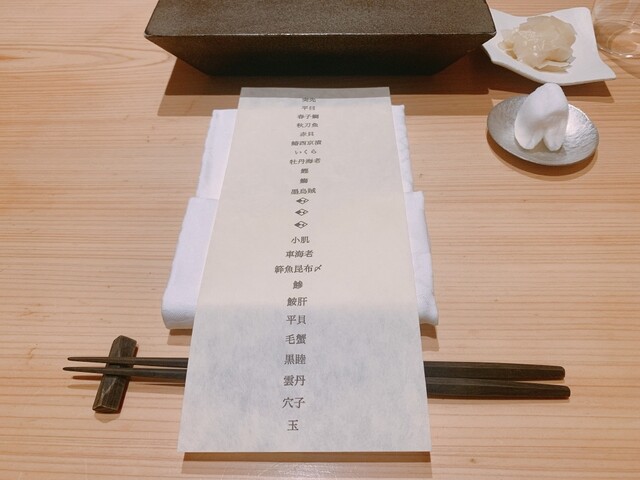 平目
春子鯛
秋刀魚
赤貝
鰆西京漬
いくら
牡丹海老
墨烏賊
小肌
車海老
鮃魚昆布〆
鯵
鮟肝
平貝
毛蟹
黒睦
雲丹
穴子
玉